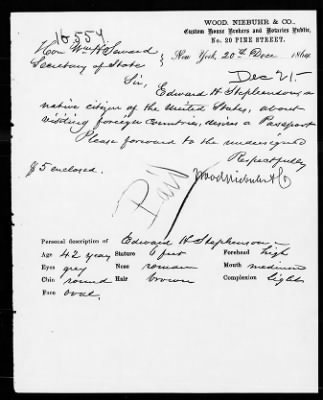 16557
WOOD, NIEBUHR & CO.,
Custom House Brokers and Notaries Public,
No. 20 PINE STREET.
Hon Wm H Seward
Secretary of State
New York, 20th Dece 1864
Dec 21-
Sir,
Edward H Stephenson, a
native citizen of the United States, about
visiting foreign countries, desires a Passport
Please forward to the undersigned
Respectfully
$5 enclosed.
Wood Niebuhr & Co
Paid
Personal description of Edward H Stephenson
Age 42 years Stature 6 feet Forehead high
Eyes grey Nose roman Mouth medium
Chin round Hair brown Complexion light
Face oval.